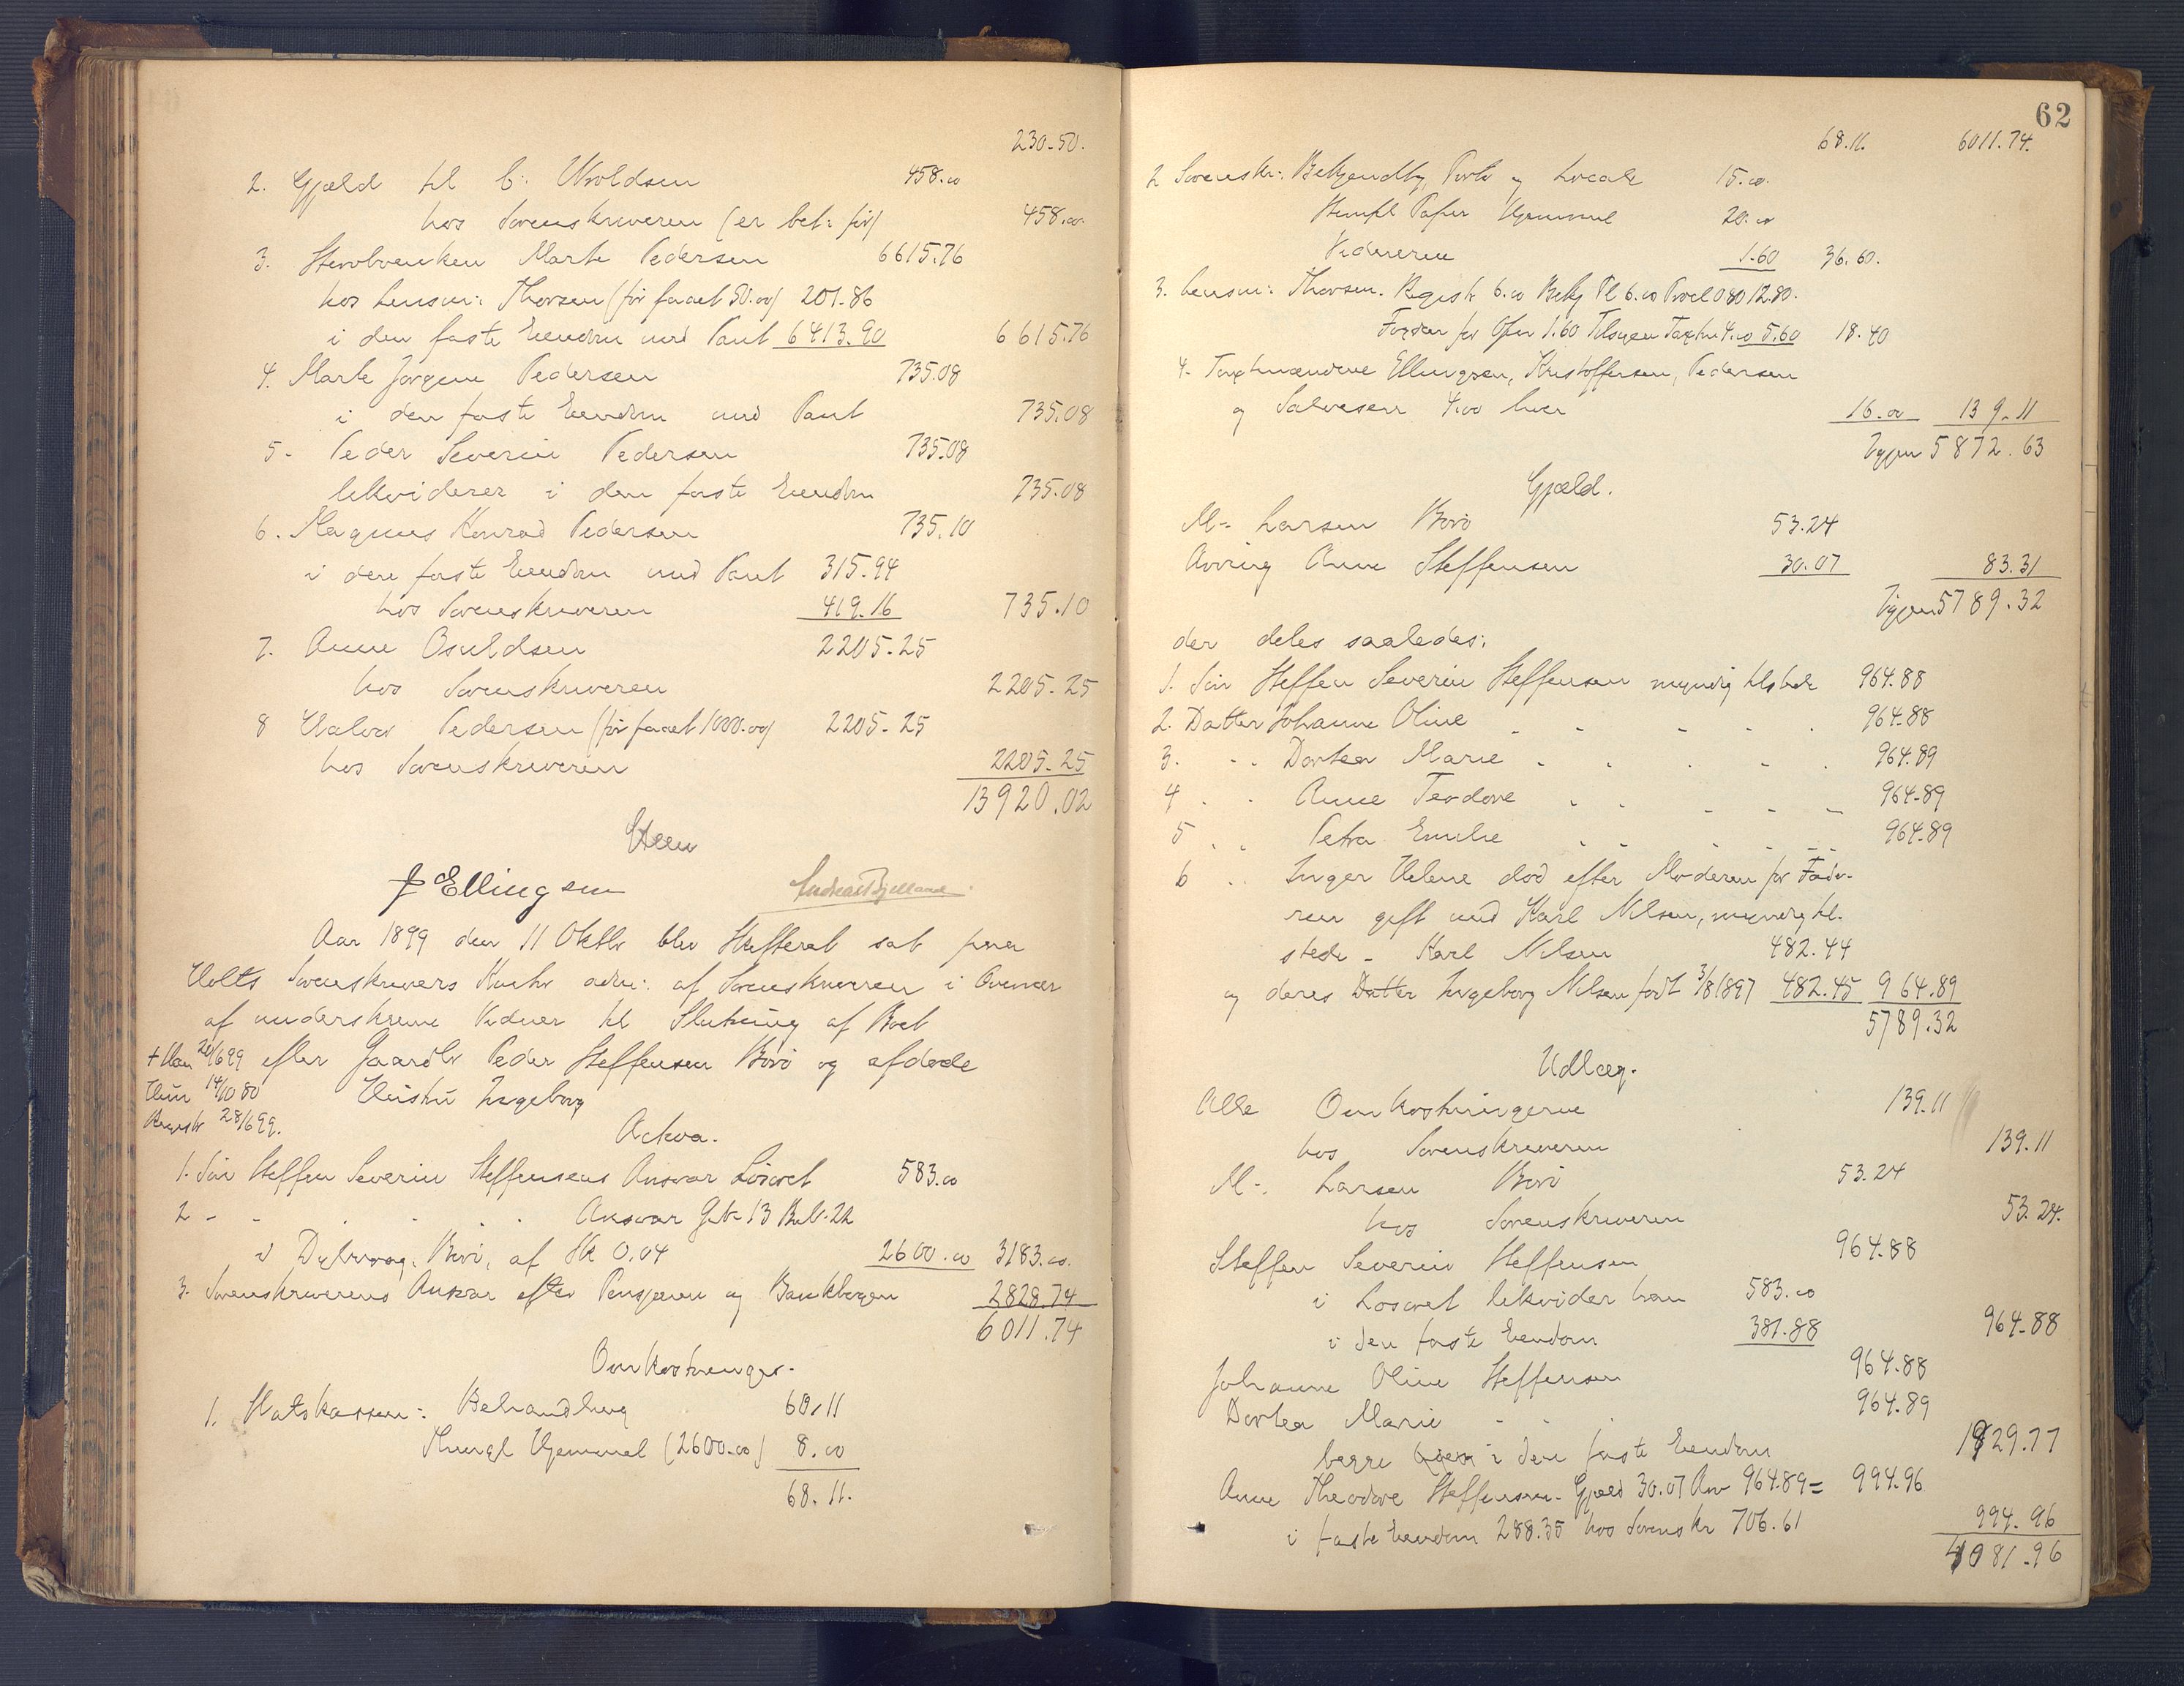 230.50.
2. Gjæld til C: Uvoldsen 458.00
hos Sorenskriveren (er bet: før) 458.00.
3. Stervboenken Marte Pedersen 6615.76
hos Lensm: Thorsen (før faaet 50.00) 201.86
i den faste Eiendom med Pant 6413.90 6615.76
4. Marte Jørgine Pedersen 735.08
i den faste Eiendom med Pant 735.08
5. Peder Severin Pedersen 735.08
likviderer i den faste Eiendom 735.08
6. Magnus Konrad Pedersen 735.10
i den faste Eiendom med Pant 315.94
hos Sorenskriveren 419.16 735.10
7. Anne Osuldsen 2205.25
hos Sorenskriveren 2205.25
8 Halvor Pedersen (før faaet 1000.00) 2205.25
hos Sorenskriveren 2205.25
13920.02
Steen
J Ellingsen
Aar 1899 den 11 Oktbr blev Skifteret sat paa
Holts Sorenskrivers Kontor adm: af Sorenskriveren i Overvær
af underskrevne Vidner til Slutning af Boet
+ Han 20/6 99 efter Gaardbr Peder Steffensen Borø og afdøde
Hun 14/10 80 Hustru Ingeborg
Registr 28/6 99.
Activa.
1. Søn Steffen Severin Steffensens Ansvar Løsøret 583.00
2 - - . . . . Ansvar G.nr 13 B.nr 22
i Dybvaag, Borø, af Sk 0.04 2600.00 3183.00.
3. Sorenskriverens Ansvar efter Pensjonen og Bankbogen 2828.74
6011.74
Omkostninger.
1. Statskassen: Behandling 60.11
Thingl Hjemmel (2600.00) 8.00
68.11.
62
68.11. 6011.74.
2 Sorenskr: Bekjendtg, Porto og Locale 15.00.
Stempl Papir Hjemmel 20.00
Vidnerne 1.60 36.60.
3. Lensm: Thorsen. Registr 6.00 Bekj Pl 6.00 Procl 0.80 12.80.
for Opn 1.60 Tilsigen Taxtm 4.00 5.60 18.40
4. Taxtmændene Ellingsen, Kristoffersen, Pedersen
og Salvesen 4.00 hver 16.00 139.11
Igjen 5872.63
Gjæld.
M. Larsen Borø 53.24
Anne Steffensen 30.07 83.31
Igjen 5789.32
der deles saaledes:
1. Søn Steffen Severin Steffensen myndig tilstede 964.88
2. Datter Johanne Oline - - - - . 964.88
3. - - Dortea Marie - . . - . 964.89
4 . . Anne Teodore . . - - - 964.89
5 . . Petra Emilie . . . . - - 964.89
6 . . Inger Helene død efter Moderen før Fade-
ren gift med Karl Nilsen, myndig til-
stede - Karl Nilsen 482.44
og deres Datter Ingeborg Nilsen født 3/8 1897 482.45 964.89
5789.32
Udlæg.
Alle Omkostningerne 139.11
hos Sorenskriveren 139.11
M. Larsen Borø 53.24
hos Sorenskriveren 53.24.
Steffen Severin Steffensen 964.88
i Løsøret likvider han 583.00
i den faste Eiendom 381.88 964.88
Johanne Oline Steffensen 964.88
Dortea Marie - - . 964.89
begge i den faste Eiendom 1929.77
Anne Theodore Steffensen. Gjæld 30.07 Arv 964.89 = 994.96
i faste Eiendom 288.35 hos Sorenskr 706.61 994.96
4081.96